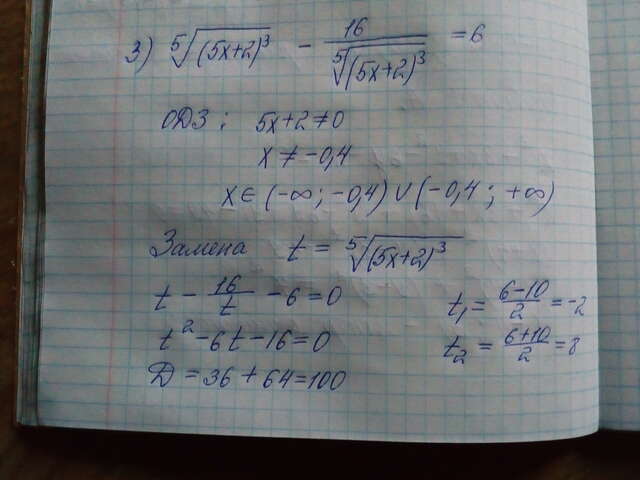 3) ⁵√(5x+2)³ - 16/⁵√(5x+2)³ = 6
ОДЗ: 5x+2≠0
x ≠ -0,4
x ∈ (-∞; -0,4) ∪ (-0,4; +∞)
Замена t = ⁵√(5x+2)³
t - 16/t - 6 = 0
t² - 6t - 16 = 0
D = 36 + 64 = 100
t₁ = (6-10)/2 = -2
t₂ = (6+10)/2 = 8